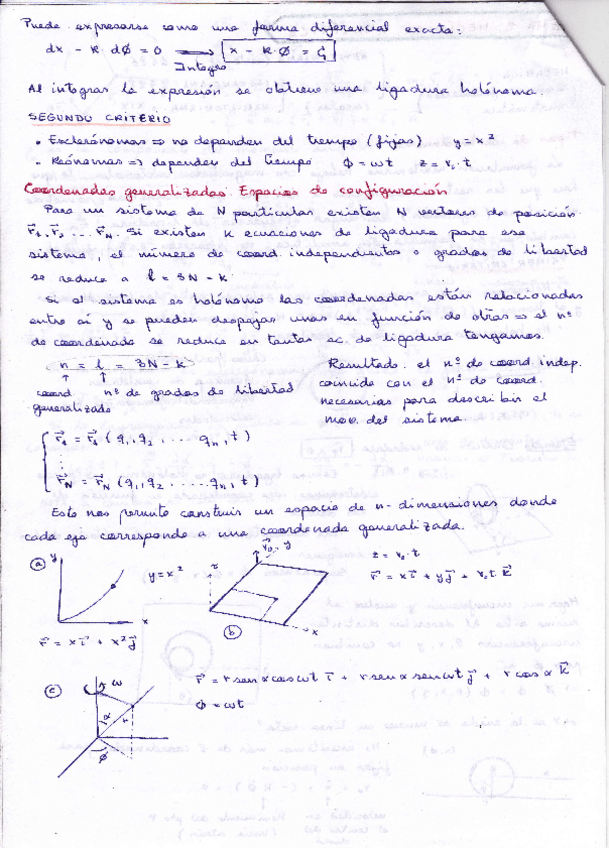 Puede expresarse como una forma diferencial exacta:
dx - R·dØ = 0 ⟹ x - R·Ø = C₁
Integro
Al integrar la expresión se obtiene una ligadura holónoma.
SEGUNDO CRITERIO
• Esclerónomas ⇒ no dependen del tiempo (fijas) y = x²
• Reónomas ⇒ dependen del tiempo Φ = ωt z = v₀·t
Coordenadas generalizadas. Espacios de configuración
Para un sistema de N partículas existen N vectores de posición
r⃗₁, r⃗₂ ... r⃗N. Si existen K ecuaciones de ligadura para ese
sistema, el número de coord. independientes o grados de libertad
se reduce a l = 3N - K
Si el sistema es holónomo las coordenadas están relacionadas
entre sí y se pueden despejar unas en función de otras ⇒ el nº
de coordenadas se reduce en tantas ec. de ligadura tengamos.
n = l = 3N - K
coord generalizada
nº de grados de libertad
Resultado: el nº de coord. indep.
coincide con el nº de coord.
necesarias para describir el
mov. del sistema.
r⃗₁ = r⃗₁ (q₁, q₂ .... qn, t)
⋮
r⃗N = r⃗N (q₁, q₂ ..... qn, t)
Esto nos permite construir un espacio de n-dimensiones donde
cada eje corresponde a una coordenada generalizada.
ⓐ y
y = x²
x
r⃗ = x i⃗ + x² j⃗
z
v⃗₀
y
x
ⓑ
z = v₀·t
r⃗ = x i⃗ + y j⃗ + v₀t k⃗
ⓒ
ω
α
r
Φ
r⃗ = r sen α cos ωt i⃗ + r sen α sen ωt j⃗ + r cos α k⃗
Φ = ωt